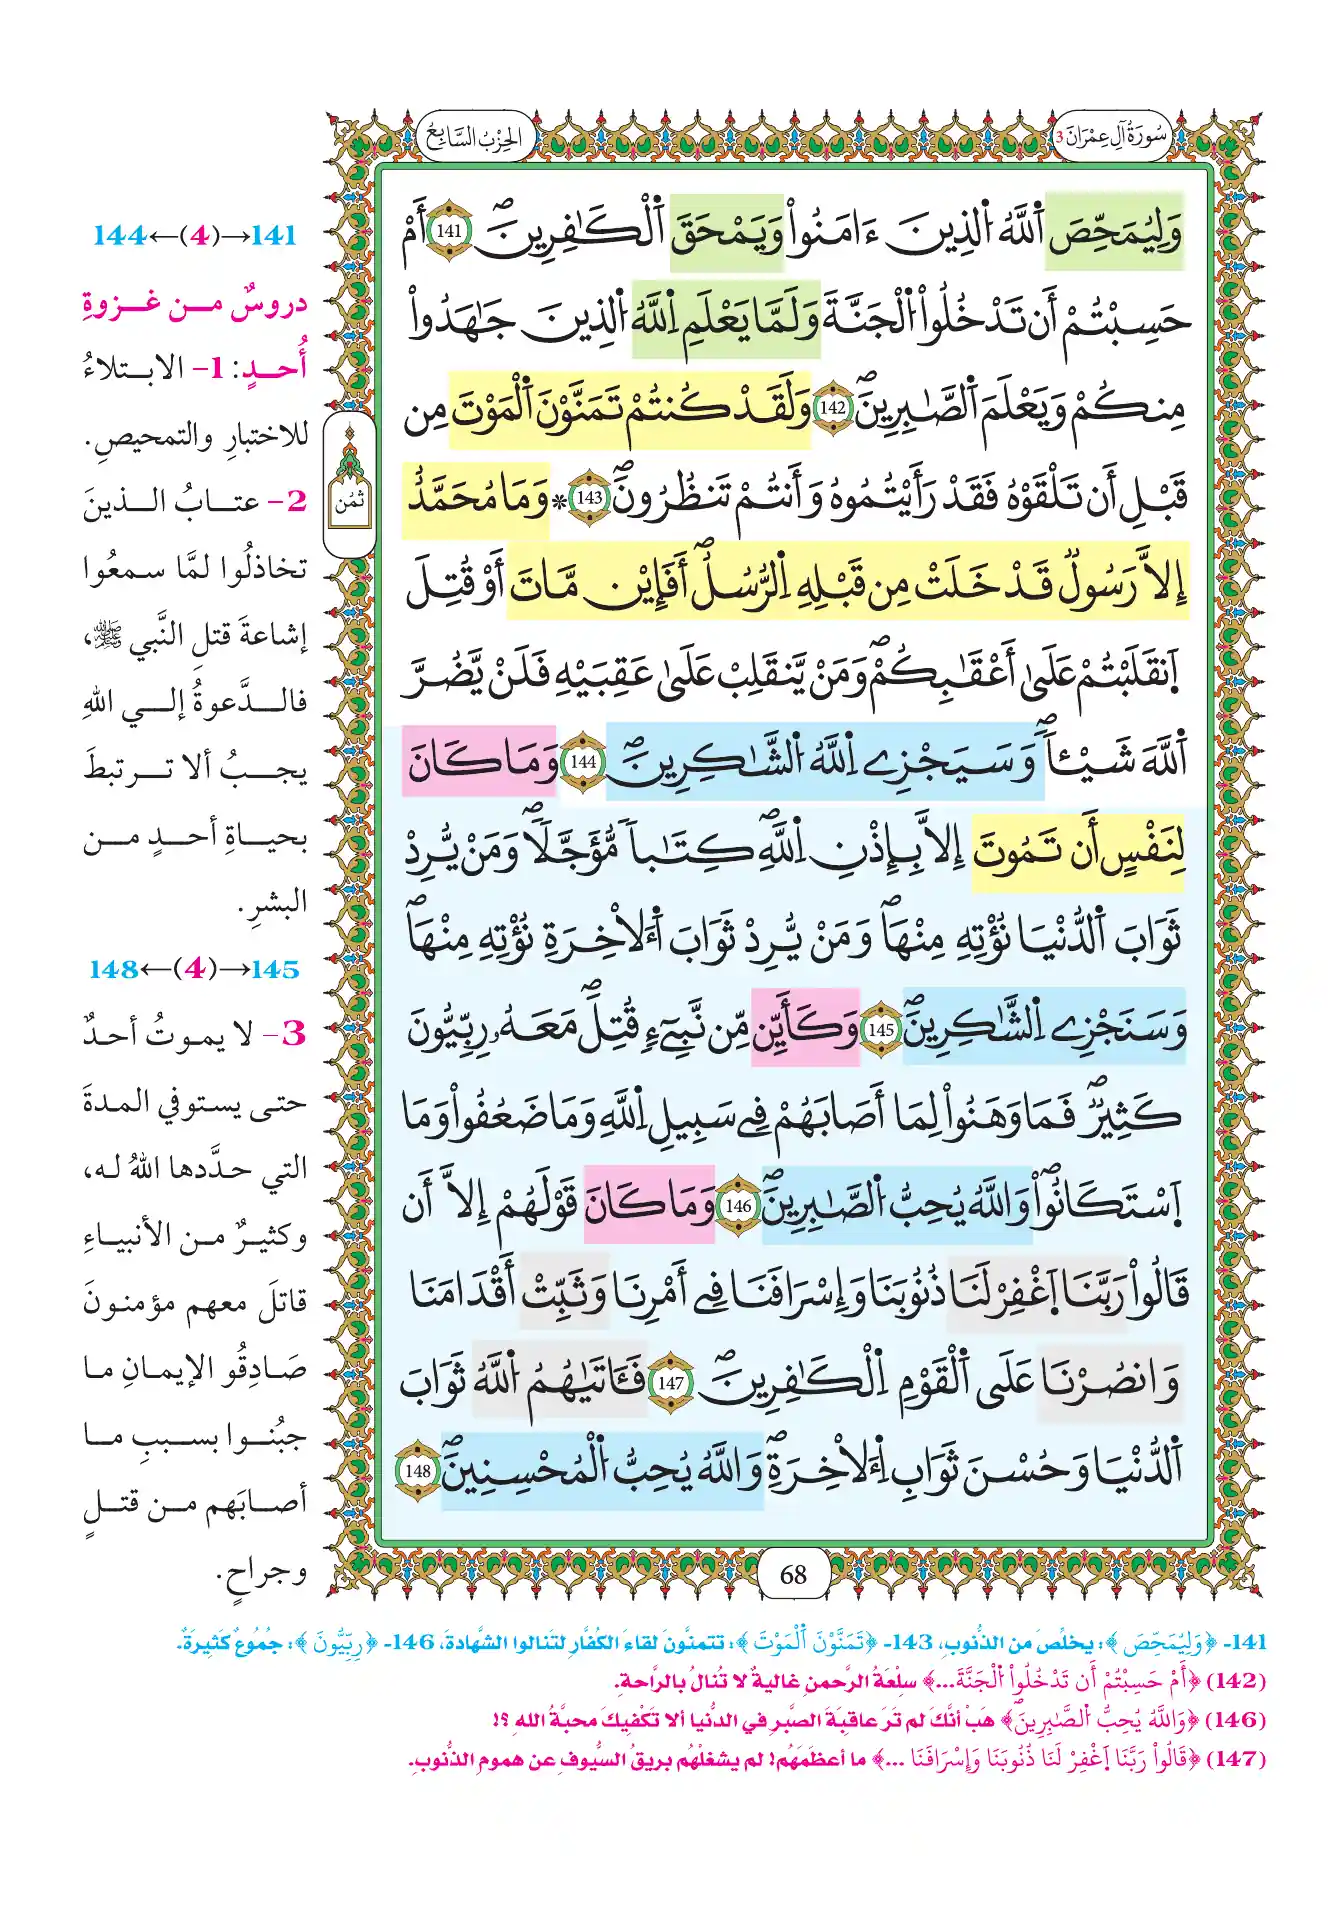 سُورَةُ آلِ عِمْرَانَ 3
الحِزْبُ السَّابِعُ
وَلِيُمَحِّصَ اَ۬للَّهُ اُ۬لذِينَ ءَامَنُواْ وَيَمْحَقَ اَ۬لْكَٰفِرِينَۖ 141 أَمْ
حَسِبْتُمْ أَن تَدْخُلُواْ اُ۬لْجَنَّةَ وَلَمَّا يَعْلَمِ اِ۬للَّهُ اُ۬لذِينَ جَٰهَدُواْ
مِنكُمْ وَيَعْلَمَ اَ۬لصَّٰبِرِينَۖ 142 وَلَقَدْ كُنتُمْ تَمَنَّوْنَ اَ۬لْمَوْتَ مِن
قَبْلِ أَن تَلْقَوْهُ فَقَدْ رَأَيْتُمُوهُ وَأَنتُمْ تَنظُرُونَۖ 143 * وَمَا مُحَمَّدٌ
إِلاَّ رَسُولٌ قَدْ خَلَتْ مِن قَبْلِهِ اِ۬لرُّسُلُۖ أَفَإِيْن مَّاتَ أَوْ قُتِلَ
اَ۪نقَلَبْتُمْ عَلَىٰ أَعْقَٰبِكُمْۖ وَمَنْ يَّنقَلِبْ عَلَىٰ عَقِبَيْهِ فَلَنْ يَّضُرَّ
اَ۬للَّهَ شَيْـٔاًۖ وَسَيَجْزِے اِ۬للَّهُ اُ۬لشَّٰكِرِينَۖ 144 وَمَا كَانَ
لِنَفْسٍ أَن تَمُوتَ إِلاَّ بِإِذْنِ اِ۬للَّهِۖ كِتَٰباً مُّؤَجَّلاًۖ وَمَنْ يُّرِدْ
ثَوَابَ اَ۬لدُّنْيَا نُؤْتِهِ مِنْهَاۖ وَمَنْ يُّرِدْ ثَوَابَ اَ۬لَاخِرَةِ نُؤْتِهِ مِنْهَاۖ
وَسَنَجْزِے اِ۬لشَّٰكِرِينَۖ 145 وَكَأَيِّن مِّن نَّبِےٓءٖ قُتِلَۖ مَعَهُۥ رِبِّيُّونَ
كَثِيرٌۖ فَمَا وَهَنُواْ لِمَا أَصَابَهُمْ فِے سَبِيلِ اِ۬للَّهِ وَمَا ضَعُفُواْ وَمَا
اَ۪سْتَكَانُواْۖ وَاللَّهُ يُحِبُّ اُ۬لصَّٰبِرِينَۖ 146 وَمَا كَانَ قَوْلَهُمْ إِلاَّ أَن
قَالُواْ رَبَّنَا اَ۪غْفِرْ لَنَا ذُنُوبَنَا وَإِسْرَافَنَا فِے أَمْرِنَا وَثَبِّتْ أَقْدَامَنَا
وَانصُرْنَا عَلَى اَ۬لْقَوْمِ اِ۬لْكَٰفِرِينَۖ 147 فَـَٔاتَيٰهُمُ اُ۬للَّهُ ثَوَابَ
اَ۬لدُّنْيَا وَحُسْنَ ثَوَابِ اِ۬لَاخِرَةِۖ وَاللَّهُ يُحِبُّ اُ۬لْمُحْسِنِينَۖ 148
ثُمُن
68
141→(4)←144
دروسٌ من غزوةِ
أُحدٍ: 1- الابتلاءُ
للاختبارِ والتمحيصِ.
2- عتابُ الذينَ
تخاذلُوا لمَّا سمعُوا
إشاعةَ قتلِ النَّبي ﷺ،
فالدَّعوةُ إلي اللهِ
يجبُ ألا ترتبطَ
بحياةِ أحدٍ من
البشرِ.
145→(4)←148
3- لا يموتُ أحدٌ
حتى يستوفي المدةَ
التي حدَّدها اللهُ له،
وكثيرٌ من الأنبياءِ
قاتلَ معهم مؤمنونَ
صَادِقُو الإيمانِ ما
جبُنوا بسببِ ما
أصابَهم من قتلٍ
وجراحٍ.
141- ﴿وَلِيُمَحِّصَ﴾: يخلِّصَ من الذُّنوبِ، 143- ﴿تَمَنَّوْنَ اَ۬لْمَوْتَ﴾: تتمنَّونَ لقاءَ الكُفَّارِ لتَنالوا الشَّهادةَ، 146- ﴿رِبِّيُّونَ﴾: جُمُوعٌ كَثِيرَةٌ.
(142) ﴿أَمْ حَسِبْتُمْ أَن تَدْخُلُواْ اُ۬لْجَنَّةَ...﴾ سلْعَةُ الرَّحمنِ غاليةٌ لا تُنالُ بالرَّاحةِ.
(146) ﴿وَاللَّهُ يُحِبُّ اُ۬لصَّٰبِرِينَۖ﴾ هَبْ أنَّكَ لم تَرَ عاقبَةَ الصَّبرِ في الدُّنيا ألا تكْفيكَ محبَّةُ اللهِ ؟!
(147) ﴿قَالُواْ رَبَّنَا اَ۪غْفِرْ لَنَا ذُنُوبَنَا وَإِسْرَافَنَا ...﴾ ما أعظمَهُم! لم يشغلْهُم بريقُ السُّيوفِ عن همومِ الذُّنوبِ.